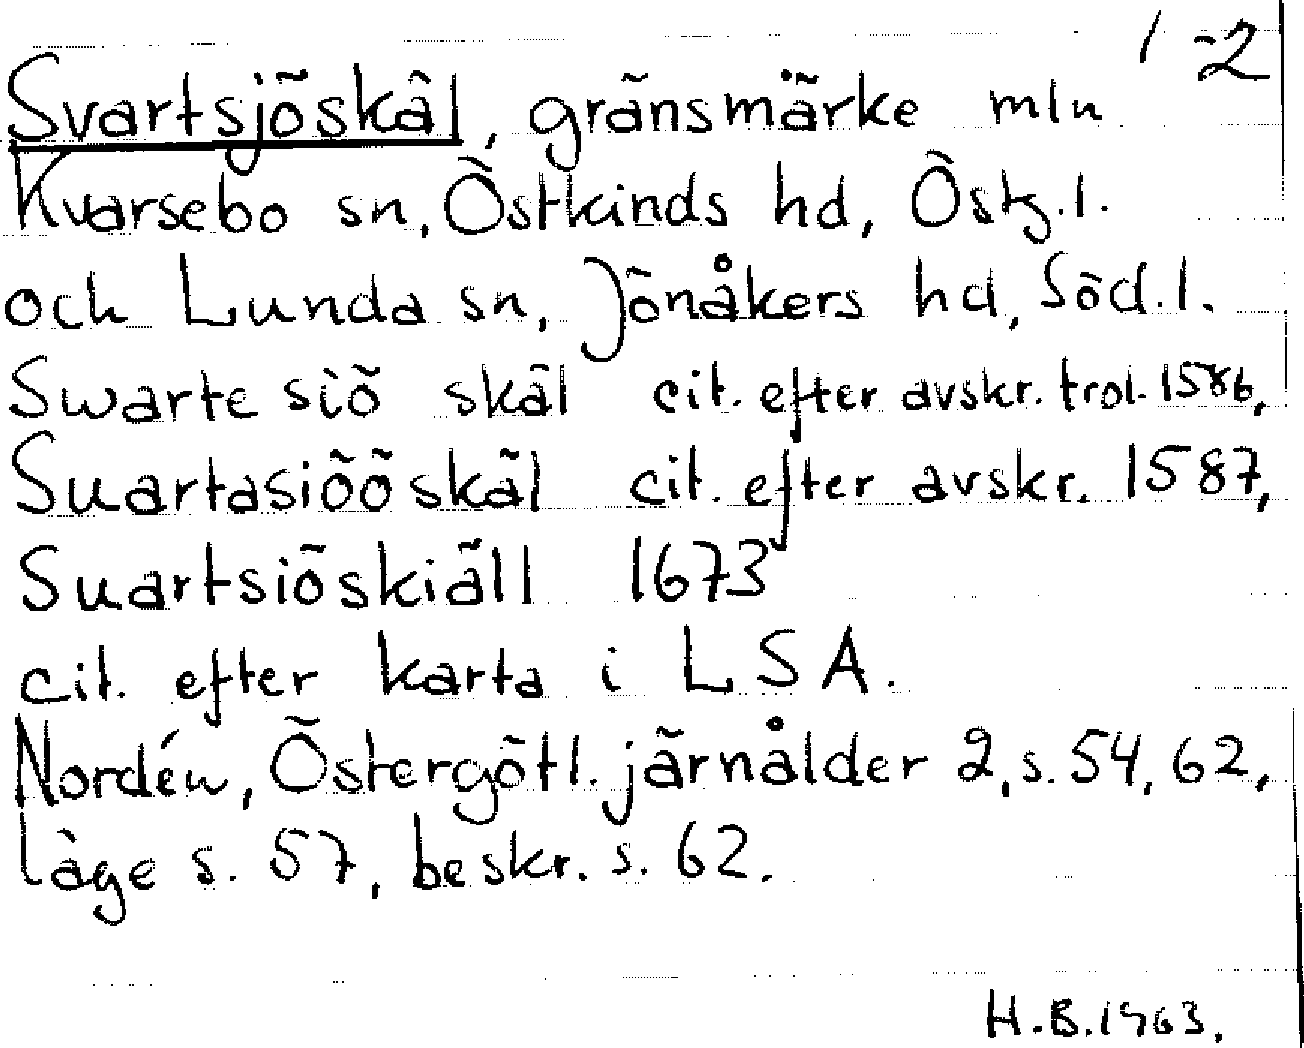 1-2
Svartsjöskäl, gränsmärke mln
Kvarsebo sn, Östkinds hd, Östg.l.
och Lunda sn, Jönåkers hd, Söd.l.
Swarte siö skäl cit. efter avskr. trol. 1586,
Suartasiöö skäl cit. efter avskr. 1587,
Suartsiöskiäll 1673
cit. efter karta i LSA.
Nordén, Östergötl. järnålder 2, s. 54, 62,
läge s. 57, beskr. s. 62.
H.B.1963.